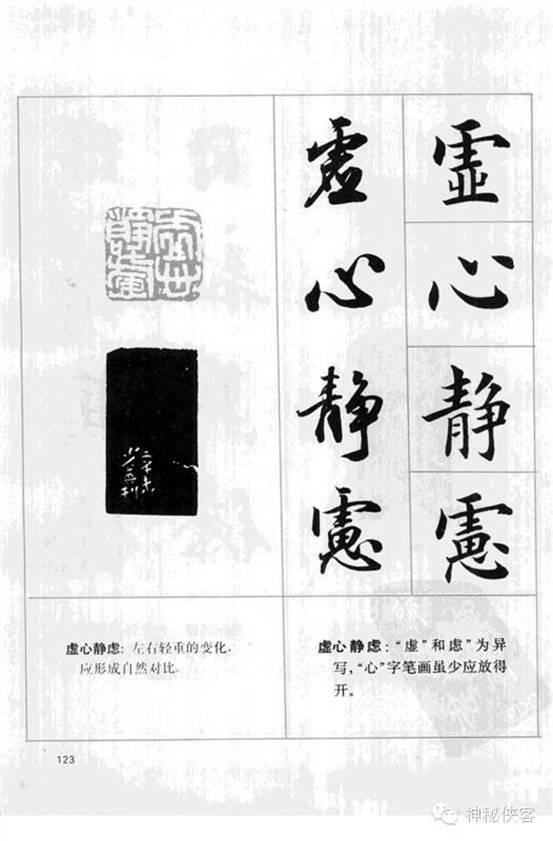 虚心静虑
虚心静虑
虚心静虑
虚心静虑：左右轻重的变化，
应形成自然对比。
虚心静虑：“虚”和虑”为异
写，“心”字笔画虽少应放得
开。
123
神秘侠客